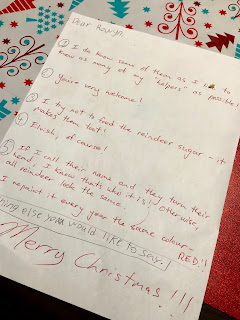 Dear Rowyn,
① I do know some of them as I like to
know as many of my "helpers" as possible!
② You're very welcome!
③ I try not to feed the reindeer sugar - it
makes them toot!
④ Elvish, of course!
⑤ If I call their name and they turn their
head, I know that's who it is! Otherwise,
all reindeer look the same.
I repaint it every year the same colour-
RED!!
thing else you would like to say.
Merry Christmas!!!